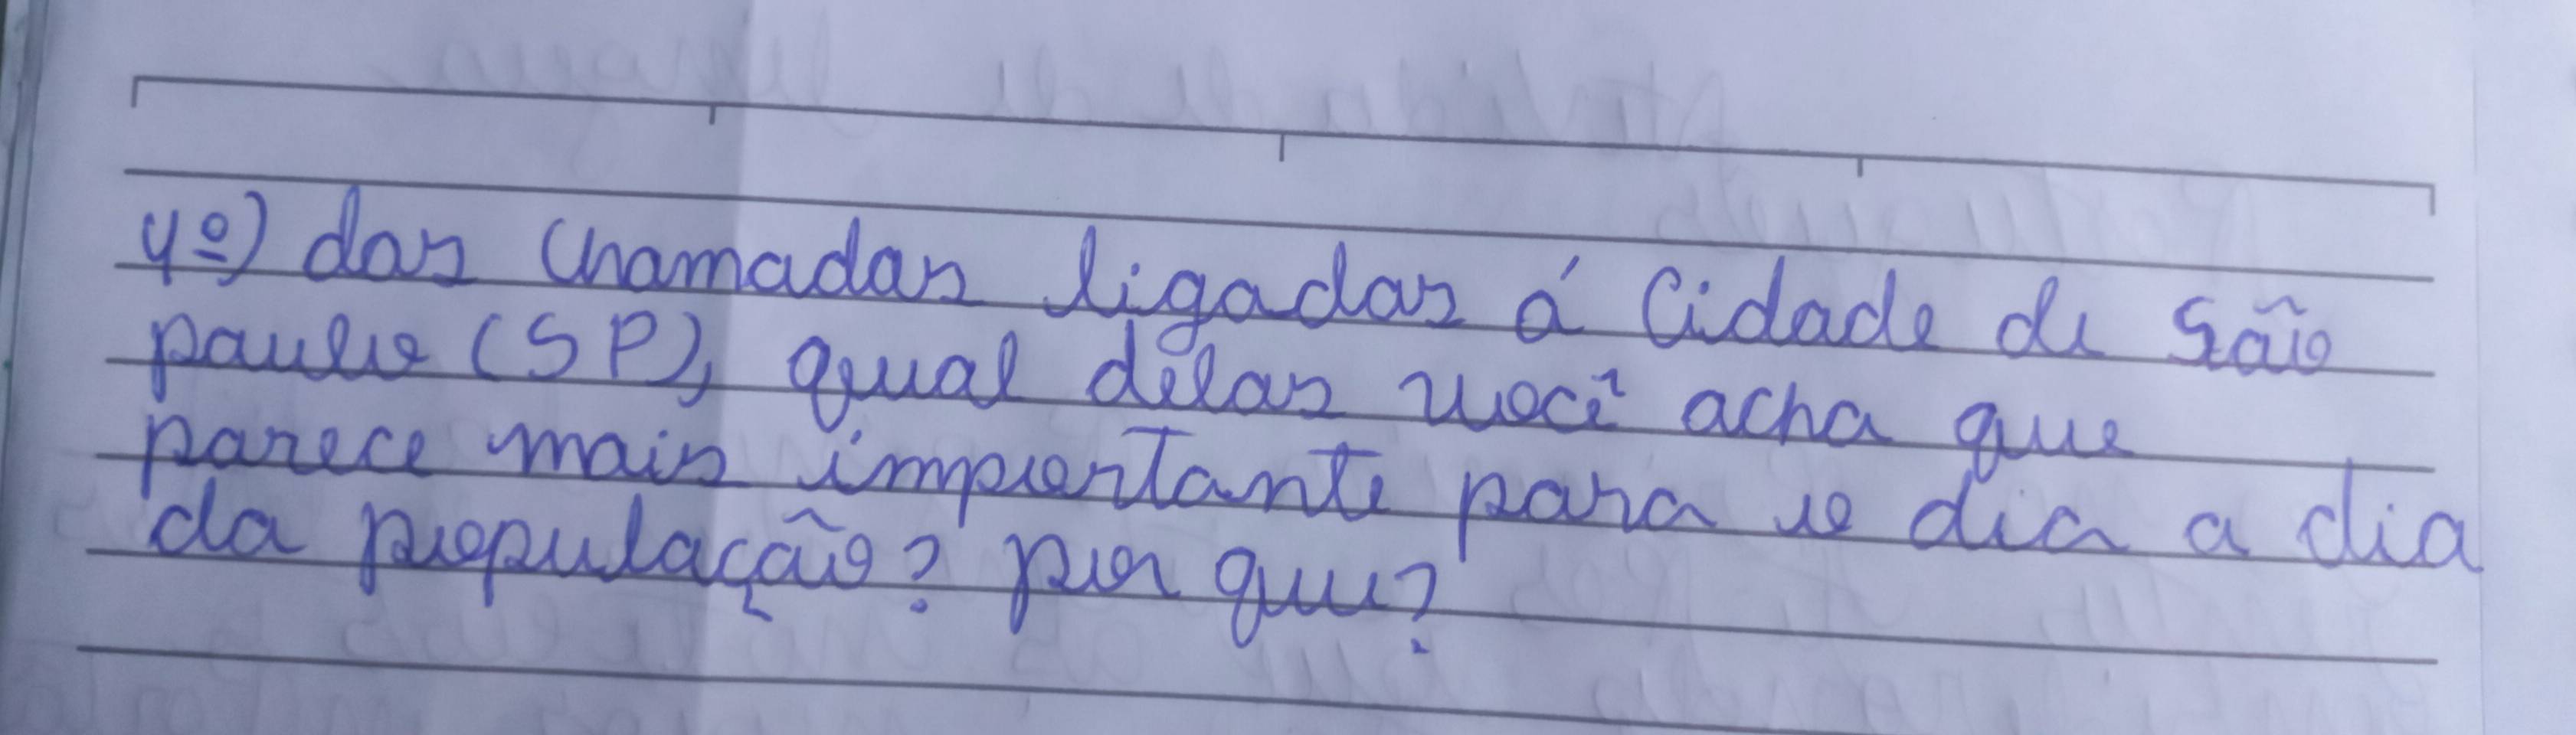 4º) das chamadas ligadas á Cidade de São
paulo (SP), qual delas você acha que
parece mais importante para o dia a dia
da população? por que?